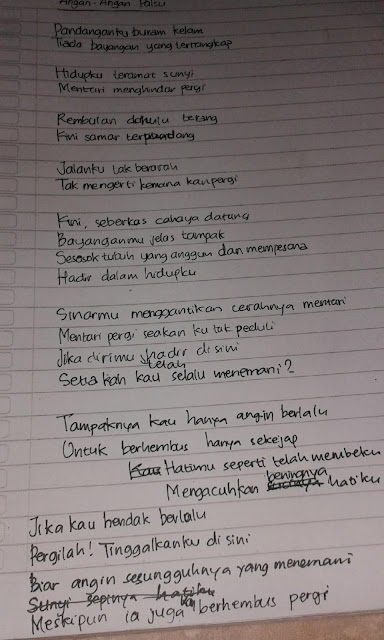 Angan-Angan Palsu
Pandanganku buram kelam
Tiada bayangan yang tertangkap
Hidupku teramat sunyi
Mentari menghindar pergi
Rembulan dahulu terang
Kini samar terpandang
Jalanku tak berarah
Tak mengerti kemana kanpergi
Kini, seberkas cahaya datang
Bayanganmu jelas tampak
Sesosok tubuh yang anggun dan mempesona
Hadir dalam hidupku
Sinarmu menggantikan cerahnya mentari
Mentari pergi seakan ku tak peduli
Jika dirimu telah hadir disini
Setia kah kau selalu menemani?
Tampaknya kau hanya angin berlalu
Untuk berhembus hanya sekejap
Kau Hatimu seperti telah membeku
Mengacuhkan beningnya hatiku
Jika kau hendak berlalu
Pergilah! Tinggalkanku di sini
Biar angin sesungguhnya yang menemani
Sunyi sepinya hatiku
Meskipun ia juga kan berhembus pergi